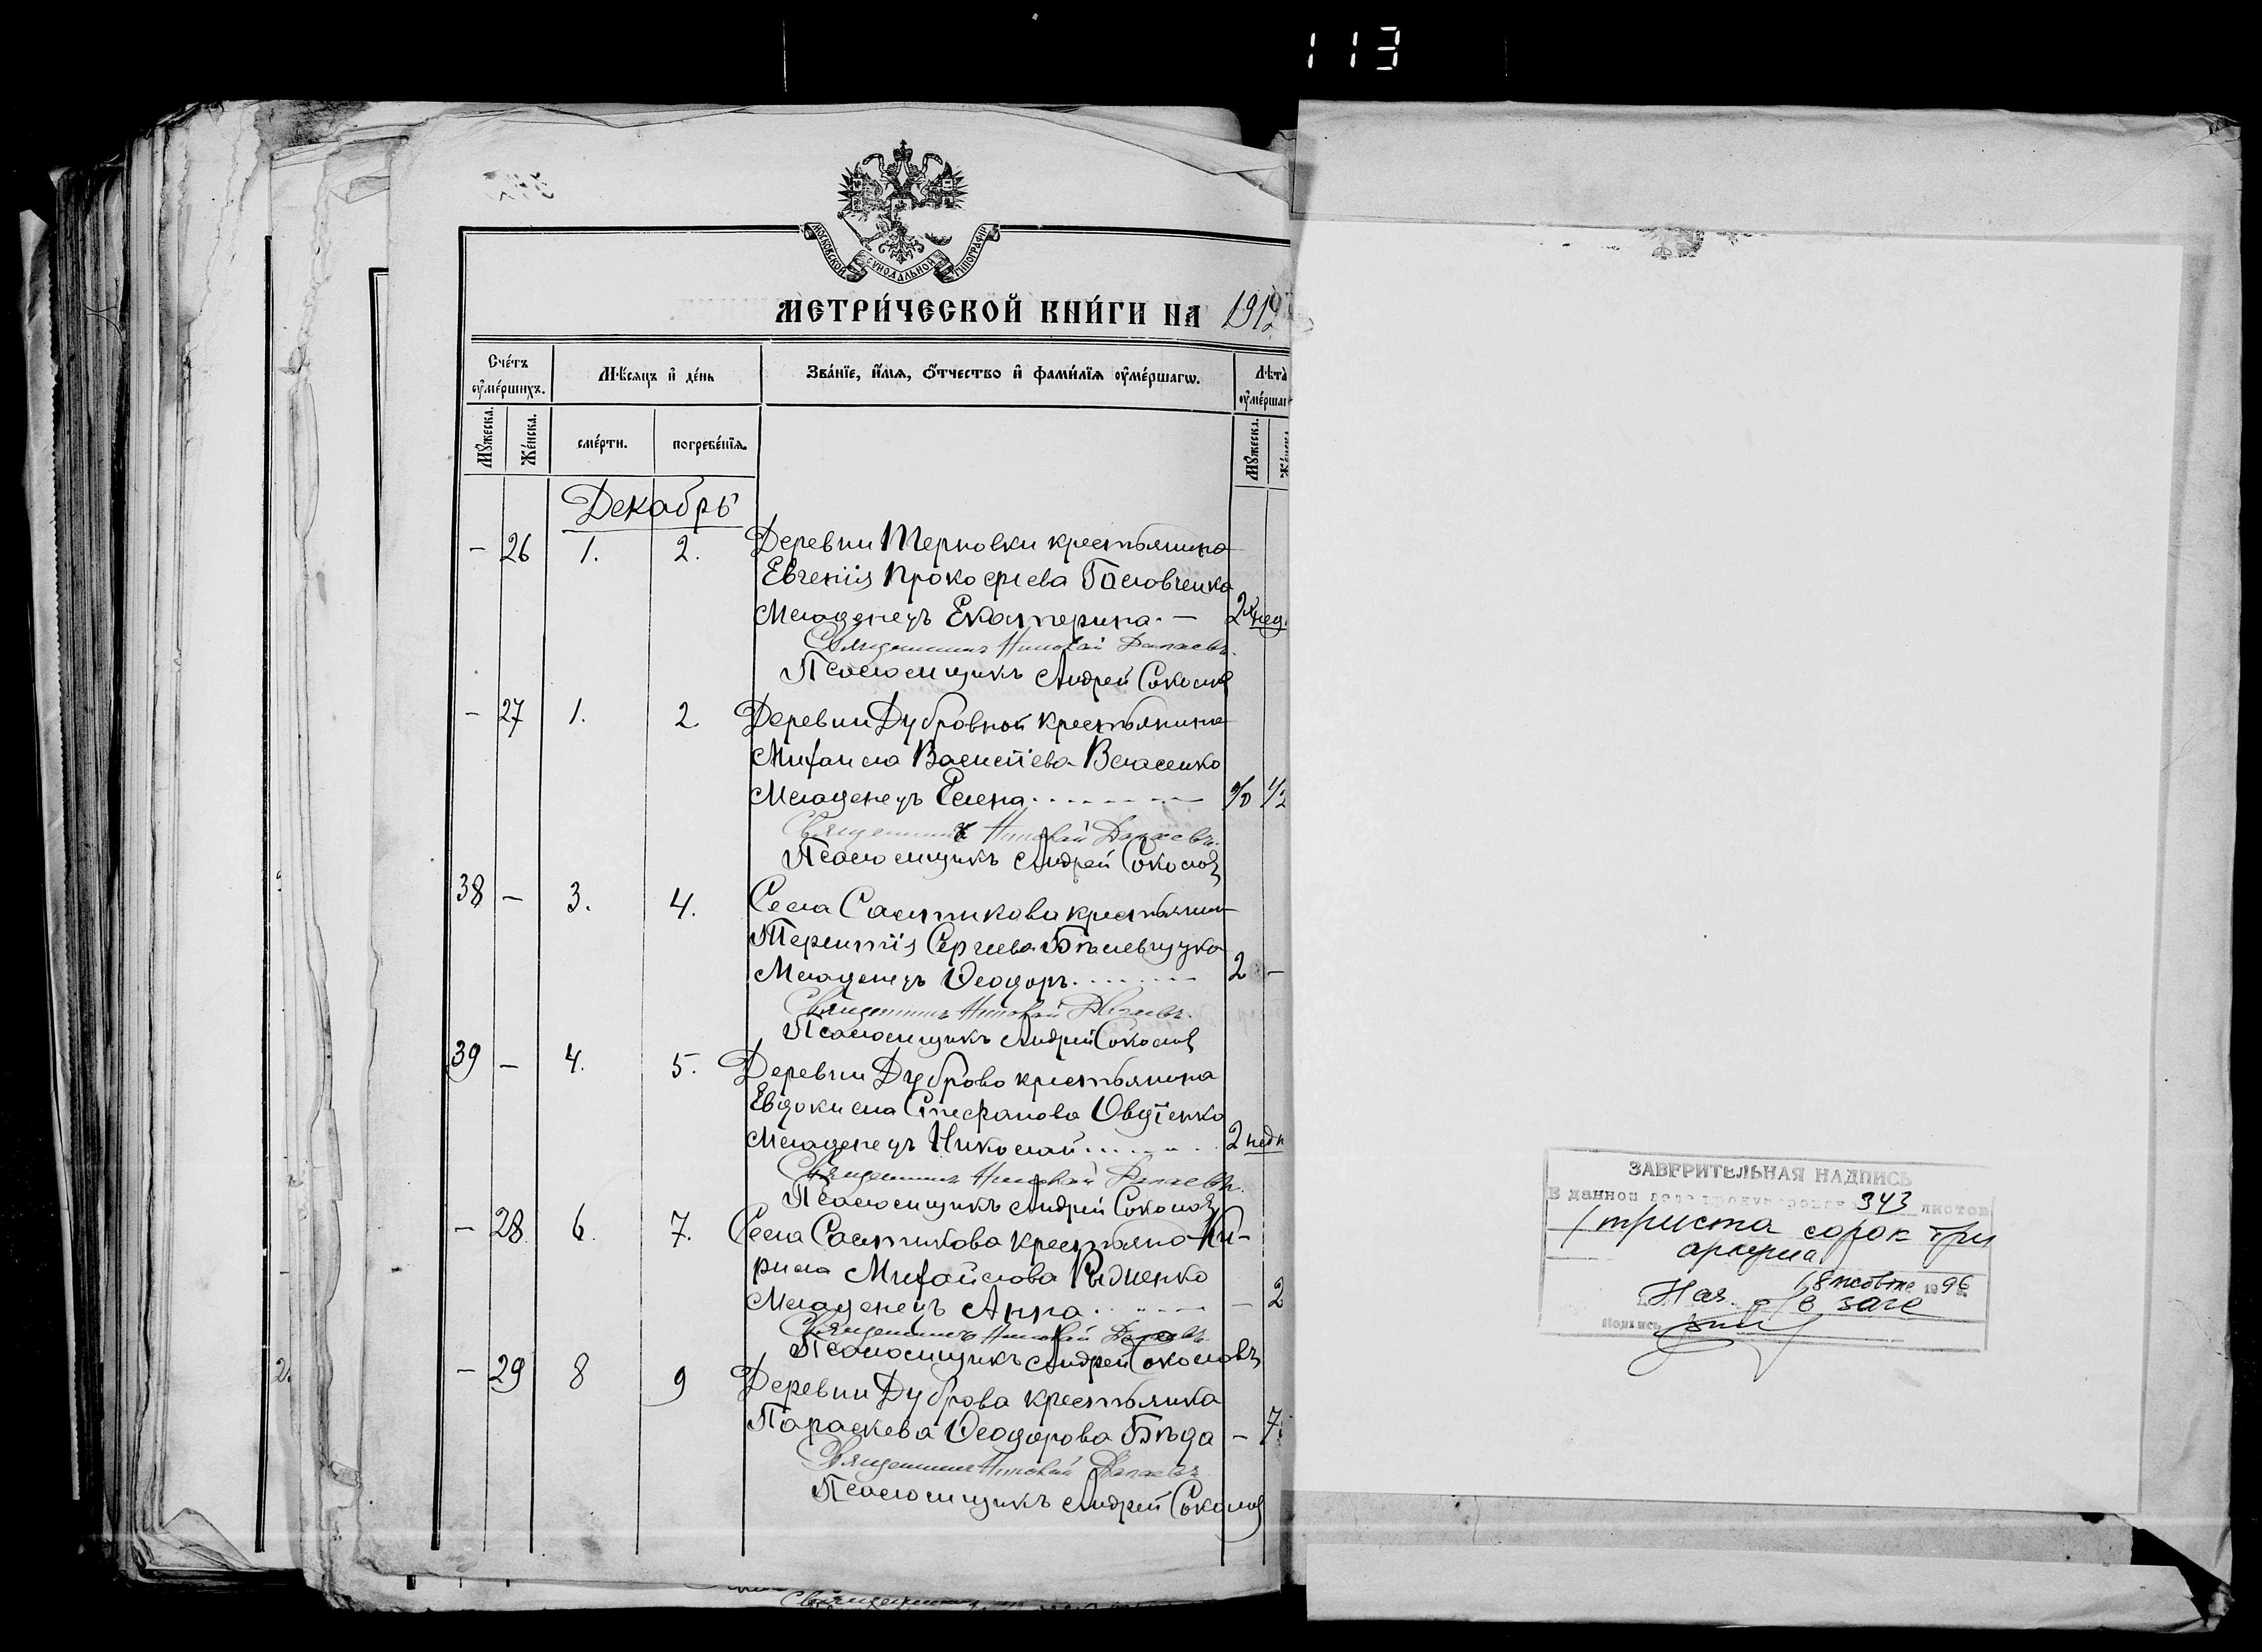 113
МОСКОВСКОЙ СѴНОДАЛЬНОЙ ТИПОГРАФІИ
МЕТРИ́ЧЕСКОЙ КНИ́ГИ НА 1912
Сче́тъ ᲂу҆ме́ршихъ.
Мѣ́сяцъ и҆ де́нь
Зва́нїе, и҆́мѧ, ѻ҆́тчество и҆ фами́лїѧ ᲂу҆ме́ршагѡ.
Лѣта̀ ᲂу҆ме́ршаг
Мꙋ́жеска.
Же́нска.
сме́рти.
погребе́нїѧ.
Мꙋ́жеска.
Же́нска
Декабрь
– 26 1. 2. Деревни Терновки крестьянина
Евгенія Прокофіева Головченко
Младенецъ Екатерина. – 2 х нед.
Священникъ Николай
Псаломщикъ Андрей Соколов
– 27 1. 2 Деревни Дубровной крестьянина
Михаила Василіева Власенко
Младенецъ Елена 1/2
Священникъ Николай
Псаломщикъ Андрей Соколов
38 – 3. 4. Села Салтикова крестьянин
Терентія Сергіева Бѣлевцука
Младенецъ Ѳеодоръ. 2 –
Священникъ Николай
Псаломщикъ Андрей Соколов
39 – 4. 5. Деревни Дуброво крестьянина
Евдокима Стефанова Овдіенко
Младенецъ Николай 2 недѣ
Священникъ Николай
Псаломщикъ Андрей Соколов
– 28 6. 7. Села Салтикова крестьяно Ки-
рила Михайлова Рыдченко
Младенецъ Анна – 2
Священникъ Николай
Псаломщикъ Андрей Соколовъ
– 29 8 9 Деревни Дуброва крестьянка
Параскева Ѳеодорова Бѣда – 7
Священникъ Николай
Псаломщикъ Андрей Соколов
ЗАВЕРИТЕЛЬНАЯ НАДПИСЬ
В данном деле пронумеровано 343 листов
(триста сорок три
аркуша
18 жовтня 1996
Нач.
Подпись